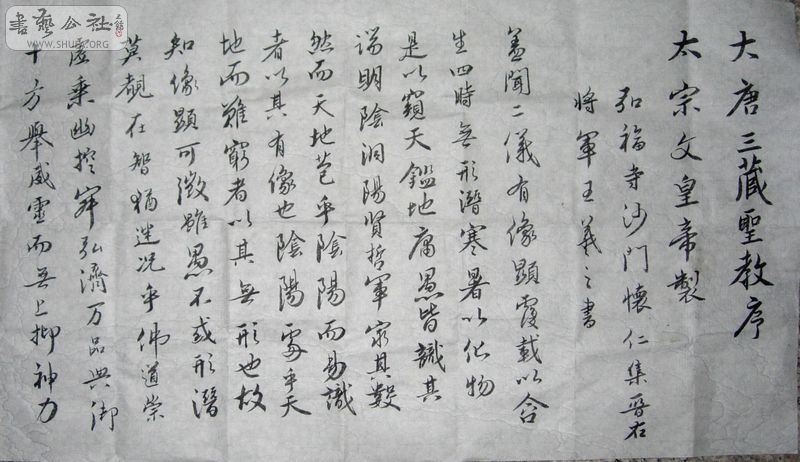 大唐三蔵聖教序
太宗文皇帝製
弘福寺沙門懷仁集晋右
将軍王羲之書
蓋聞二儀有像顯覆載以含
生四時無形潛寒暑以化物
是以窺天鑑地庸愚皆識其
端明陰洞陽賢哲罕窮其數
然而天地苞乎陰陽而易識
者以其有像也陰陽處乎天
地而難窮者以其無形也故
知像顯可徵雖愚不惑形潛
莫覩在智猶迷况乎佛道崇
虛乗幽控寂弘濟万品典御
十方舉威靈而無上抑神力
書藝公社
www.SHUFA.ORG